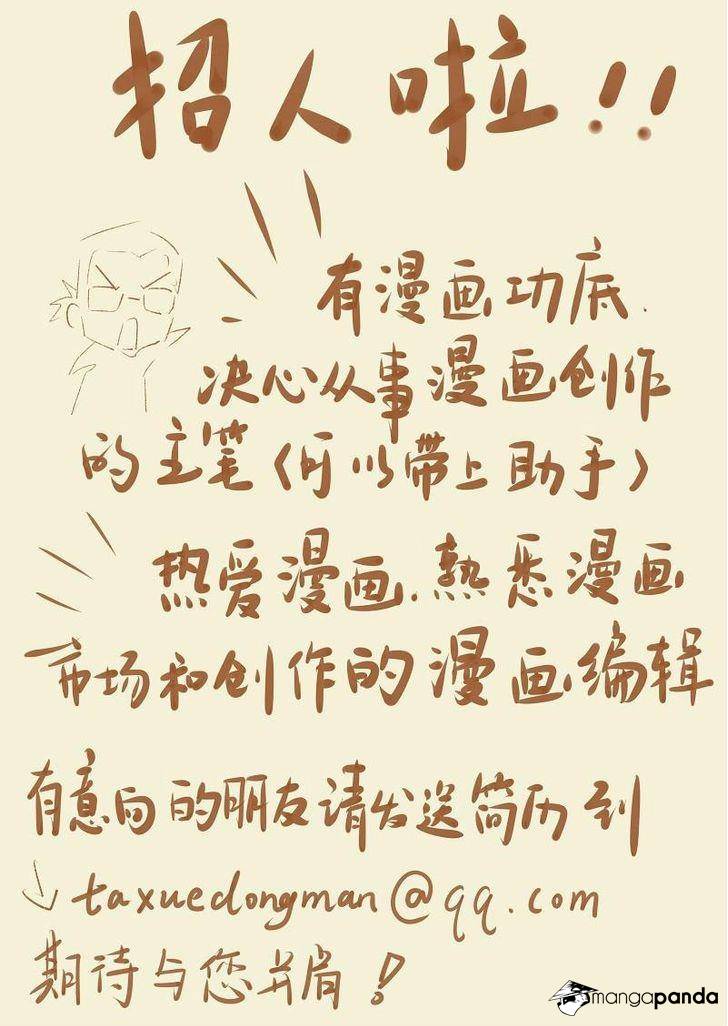 招人啦!!
有漫画功底.
决心从事漫画创作
的主笔〈可以带上助手〉
热爱漫画.熟悉漫画
市场和创作的漫画编辑
有意向的朋友请发送简历到
↓ taxuedongman@qq.com
期待与您并肩!
mangapanda